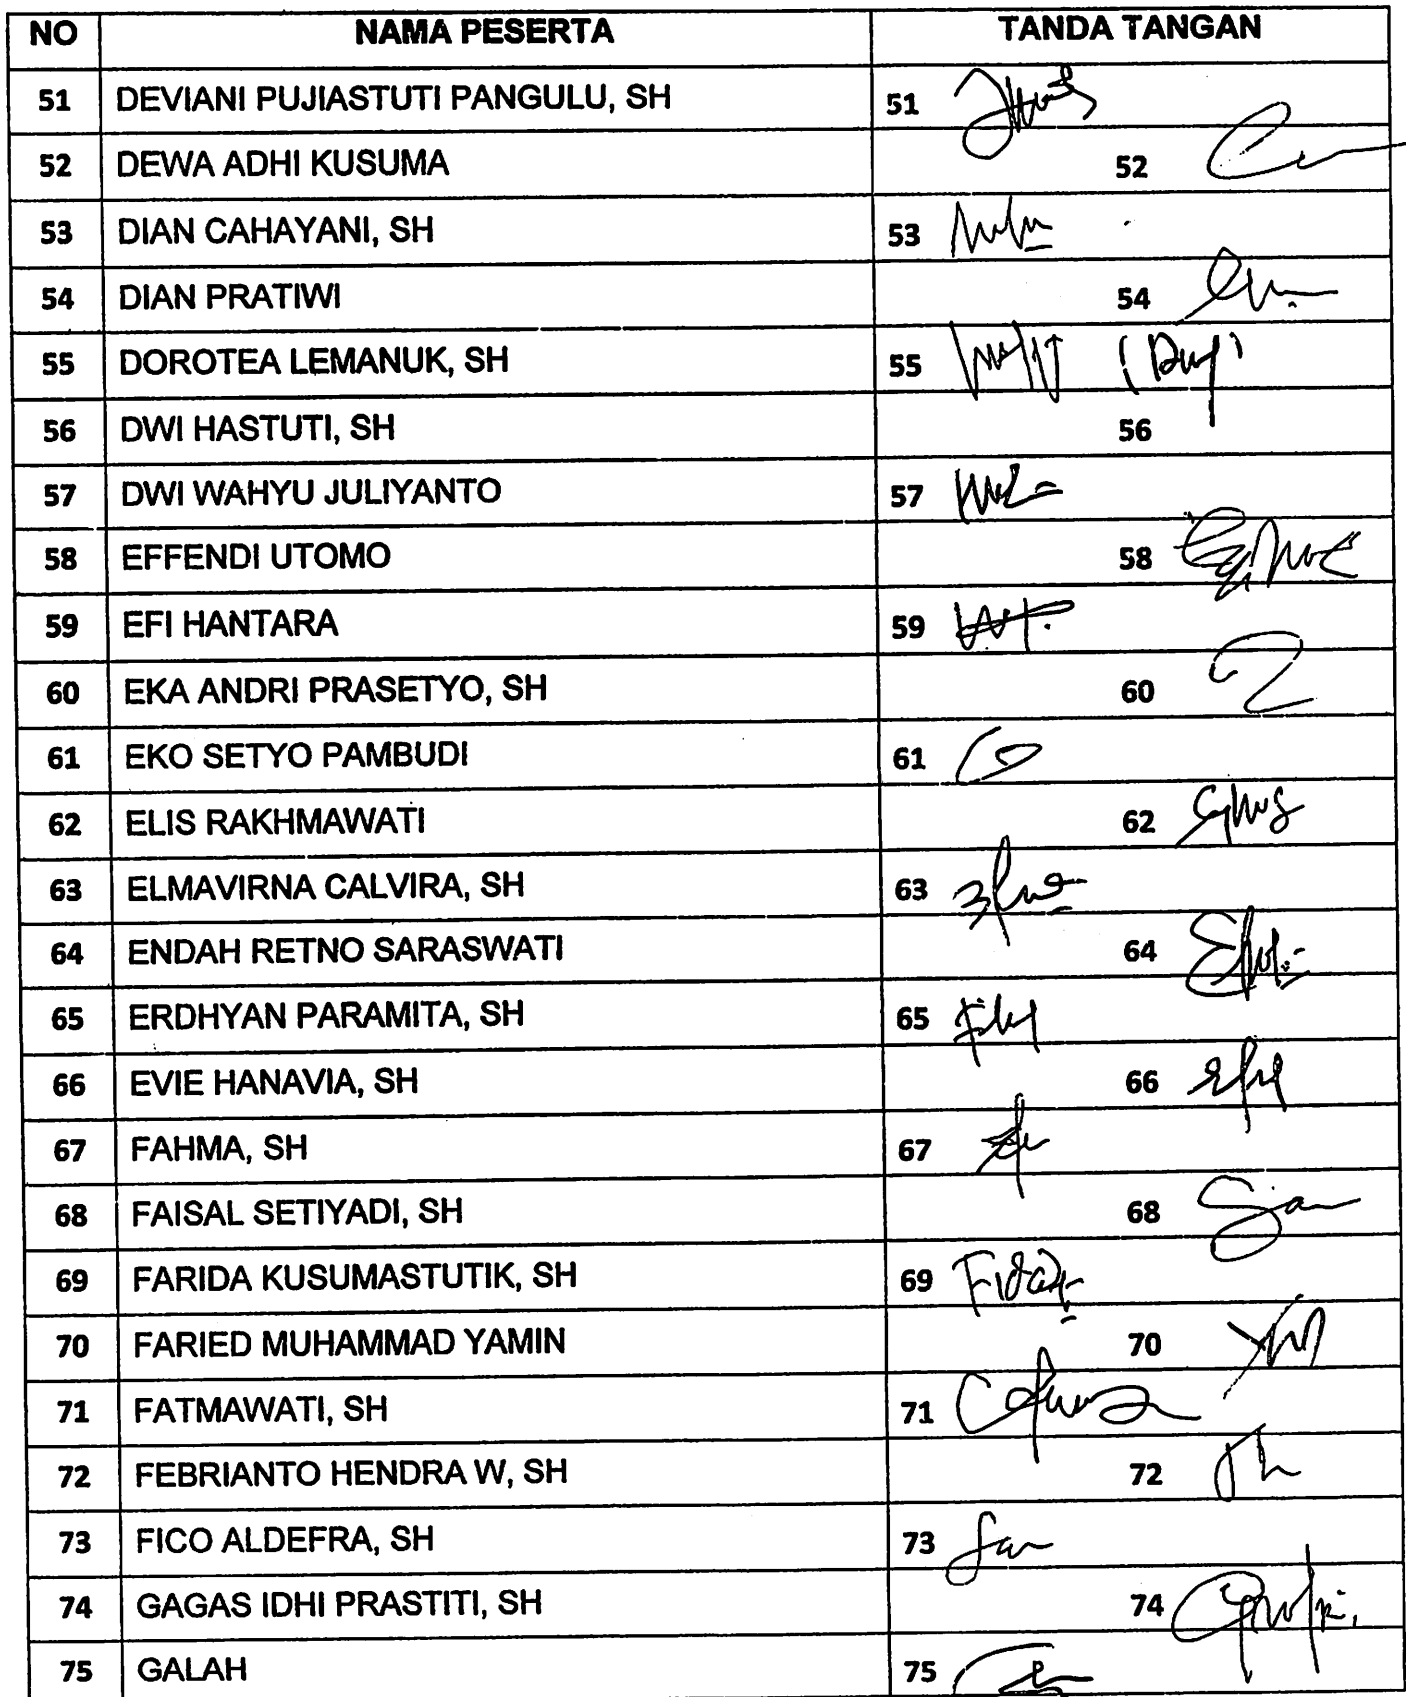 NO NAMA PESERTA TANDA TANGAN
51 DEVIANI PUJIASTUTI PANGULU, SH 51
52 DEWA ADHI KUSUMA 52
53 DIAN CAHAYANI, SH 53
54 DIAN PRATIWI 54
55 DOROTEA LEMANUK, SH 55
56 DWI HASTUTI, SH 56
57 DWI WAHYU JULIYANTO 57
58 EFFENDI UTOMO 58
59 EFI HANTARA 59
60 EKA ANDRI PRASETYO, SH 60
61 EKO SETYO PAMBUDI 61
62 ELIS RAKHMAWATI 62
63 ELMAVIRNA CALVIRA, SH 63
64 ENDAH RETNO SARASWATI 64
65 ERDHYAN PARAMITA, SH 65
66 EVIE HANAVIA, SH 66
67 FAHMA, SH 67
68 FAISAL SETIYADI, SH 68
69 FARIDA KUSUMASTUTIK, SH 69
70 FARIED MUHAMMAD YAMIN 70
71 FATMAWATI, SH 71
72 FEBRIANTO HENDRA W, SH 72
73 FICO ALDEFRA, SH 73
74 GAGAS IDHI PRASTITI, SH 74
75 GALAH 75